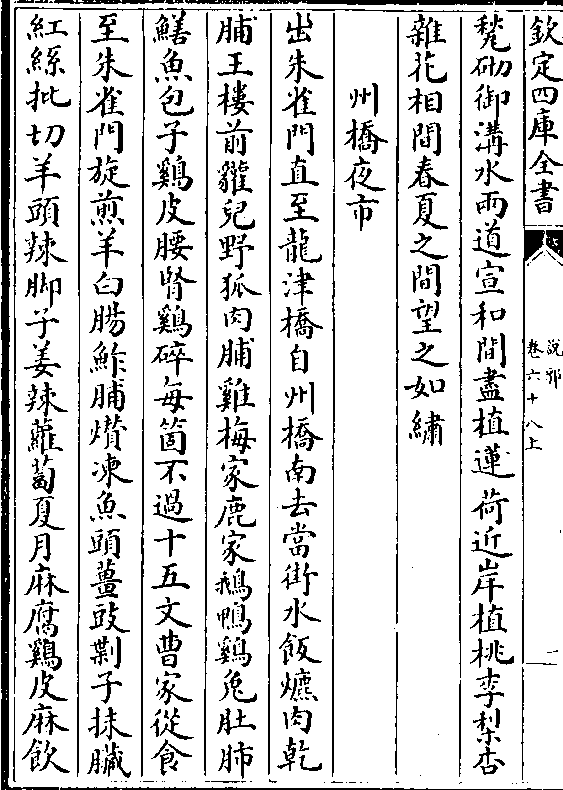 欽定四庫全書
說郛
卷六十八上
二
甃砌御溝水兩道宣和間盡植蓮荷近岸植桃李梨杏
雜花相間春夏之間望之如繡
州橋夜市
出朱雀門直至龍津橋自州橋南去當街水飯爊肉乾
脯王樓前貛兒野狐肉脯雞梅家鹿家鵝鴨鷄兔肚肺
鱔魚包子鷄皮腰腎鷄碎每箇不過十五文曹家從食
至朱雀門旋煎羊白腸鮓脯㸇凍魚頭薑豉剿子抹臟
紅絲批切羊頭辣脚子姜辣蘿蔔夏月麻腐鷄皮麻飲